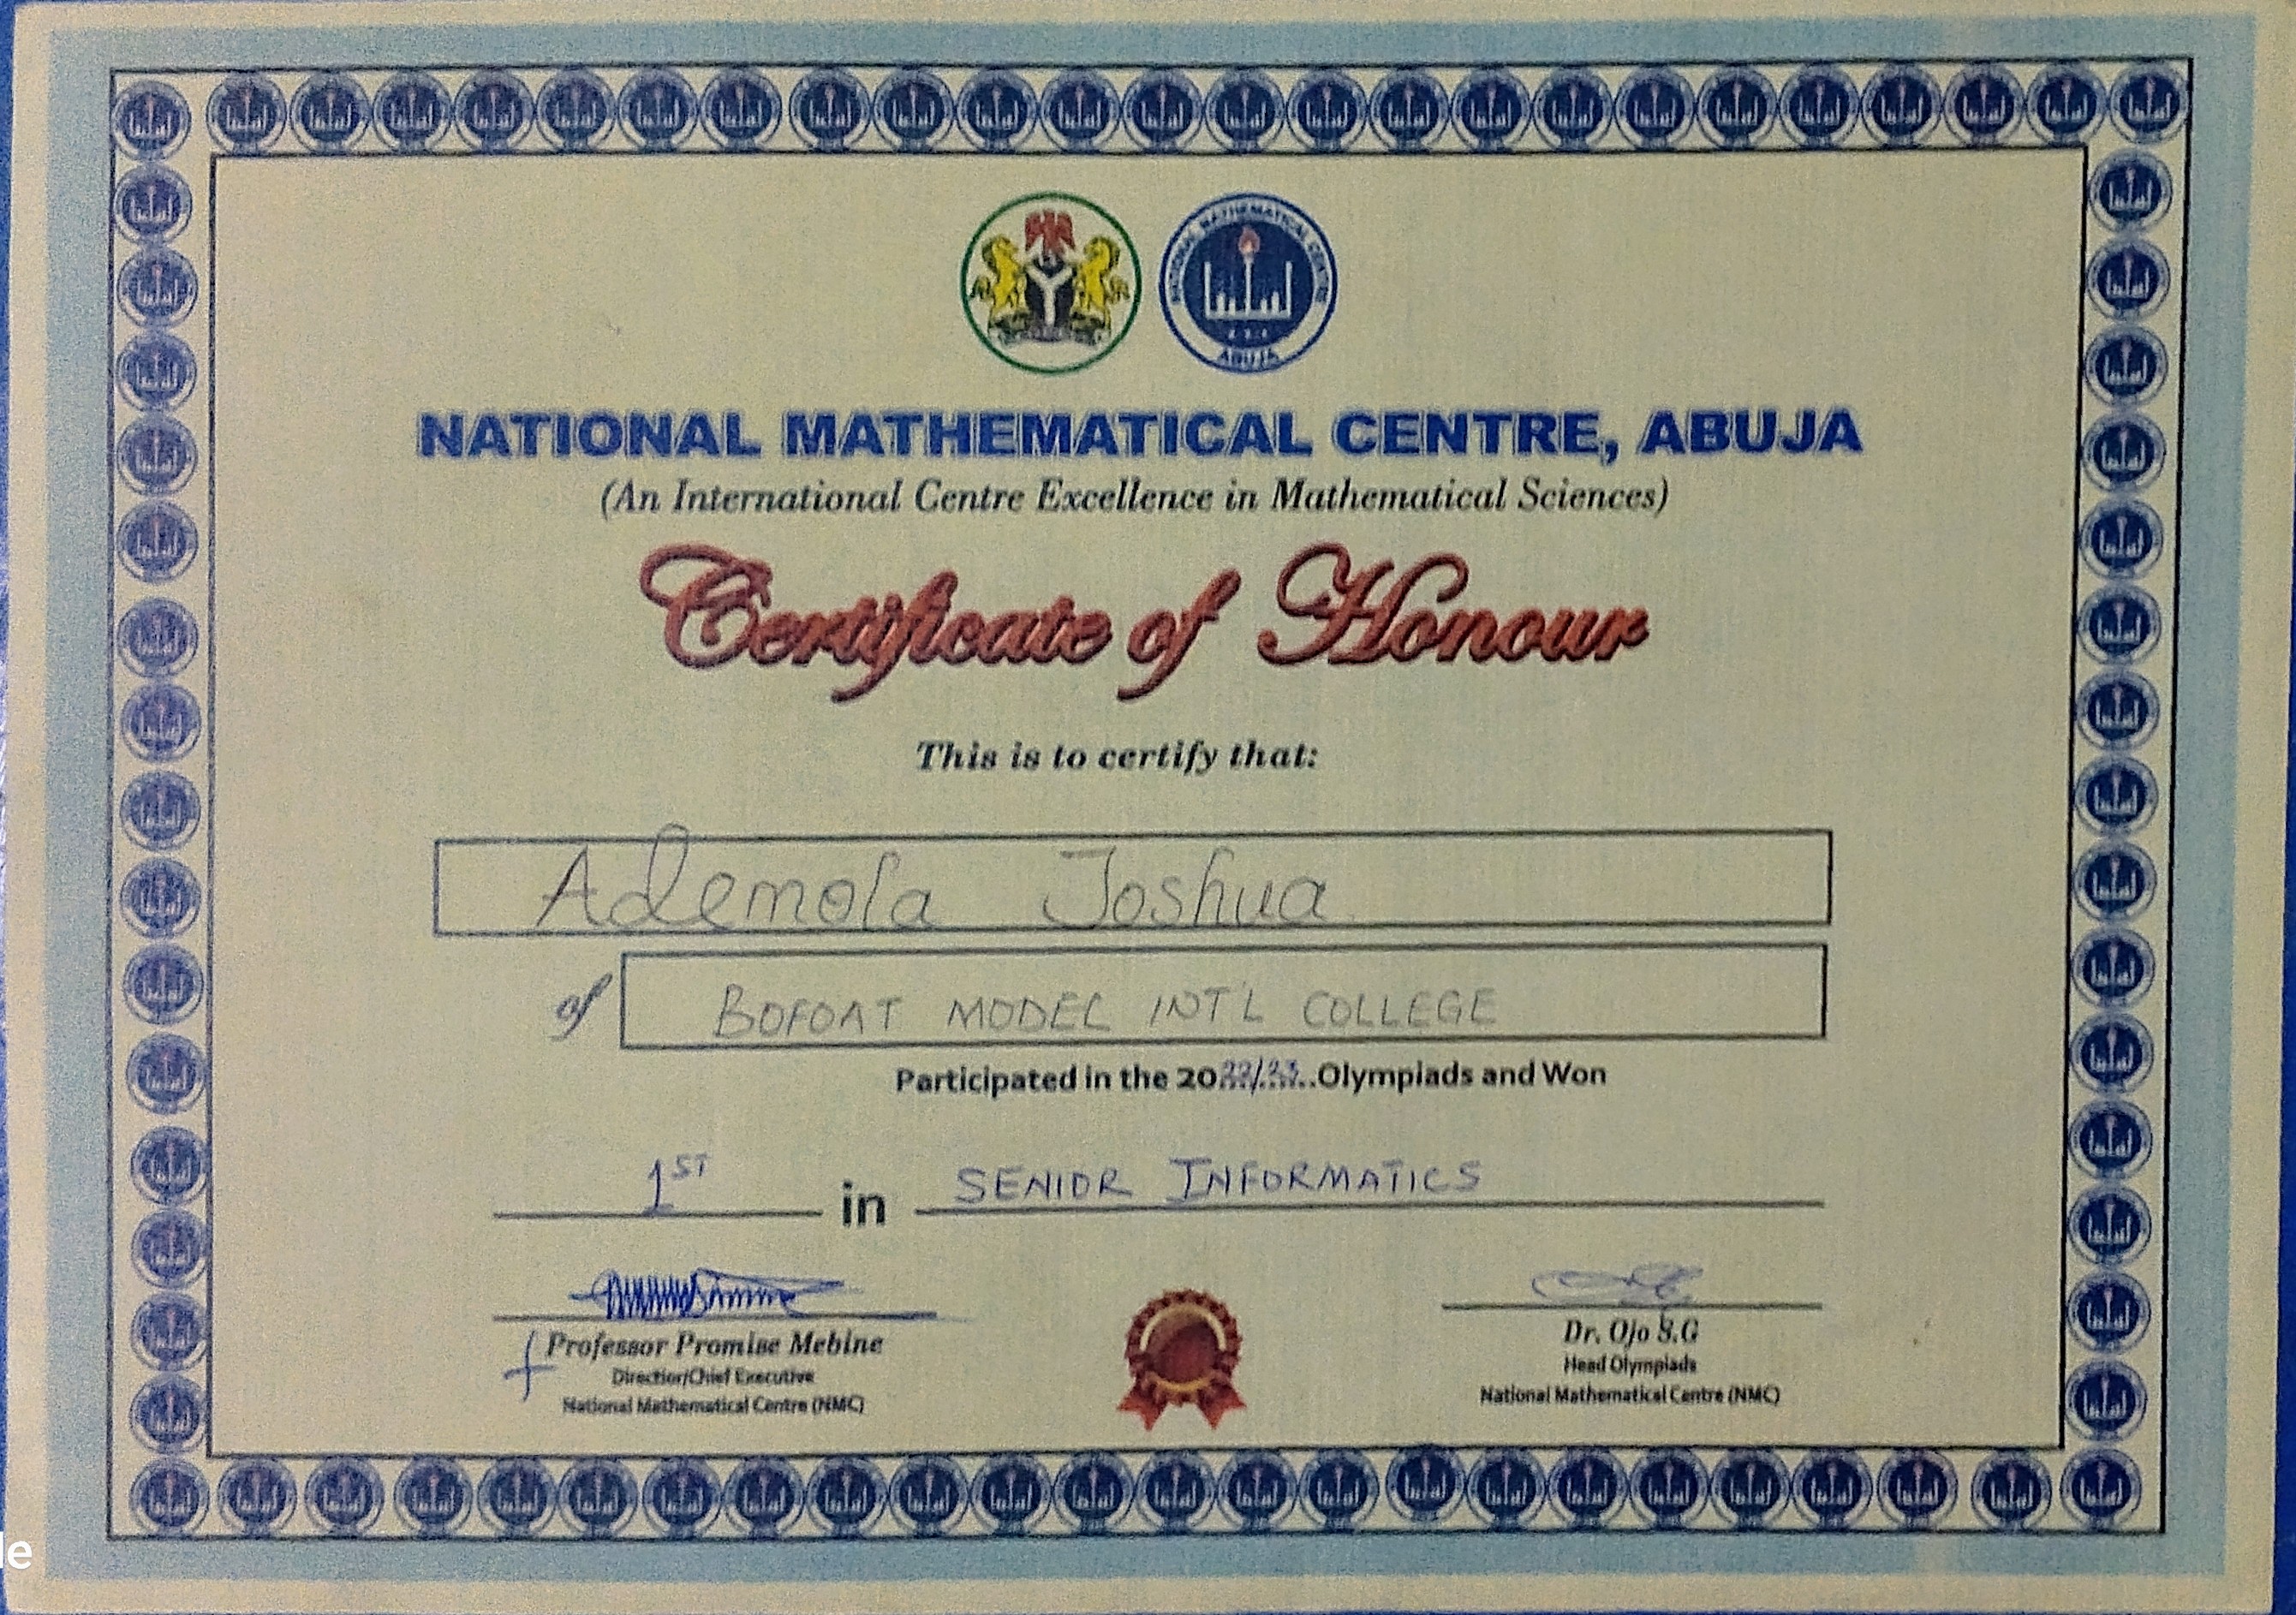 NATIONAL MATHEMATICAL CENTRE
ABUJA
NATIONAL MATHEMATICAL CENTRE, ABUJA
(An International Centre Excellence in Mathematical Sciences)
Certificate of Honour
This is to certify that:
Ademola Joshua
of BOFOAT MODEL INT'L COLLEGE
Participated in the 2022/23 Olympiads and Won
1ST in SENIOR INFORMATICS
Professor Promise Mebine
Director/Chief Executive
National Mathematical Centre (NMC)
Dr. Ojo S.G
Head Olympiads
National Mathematical Centre (NMC)